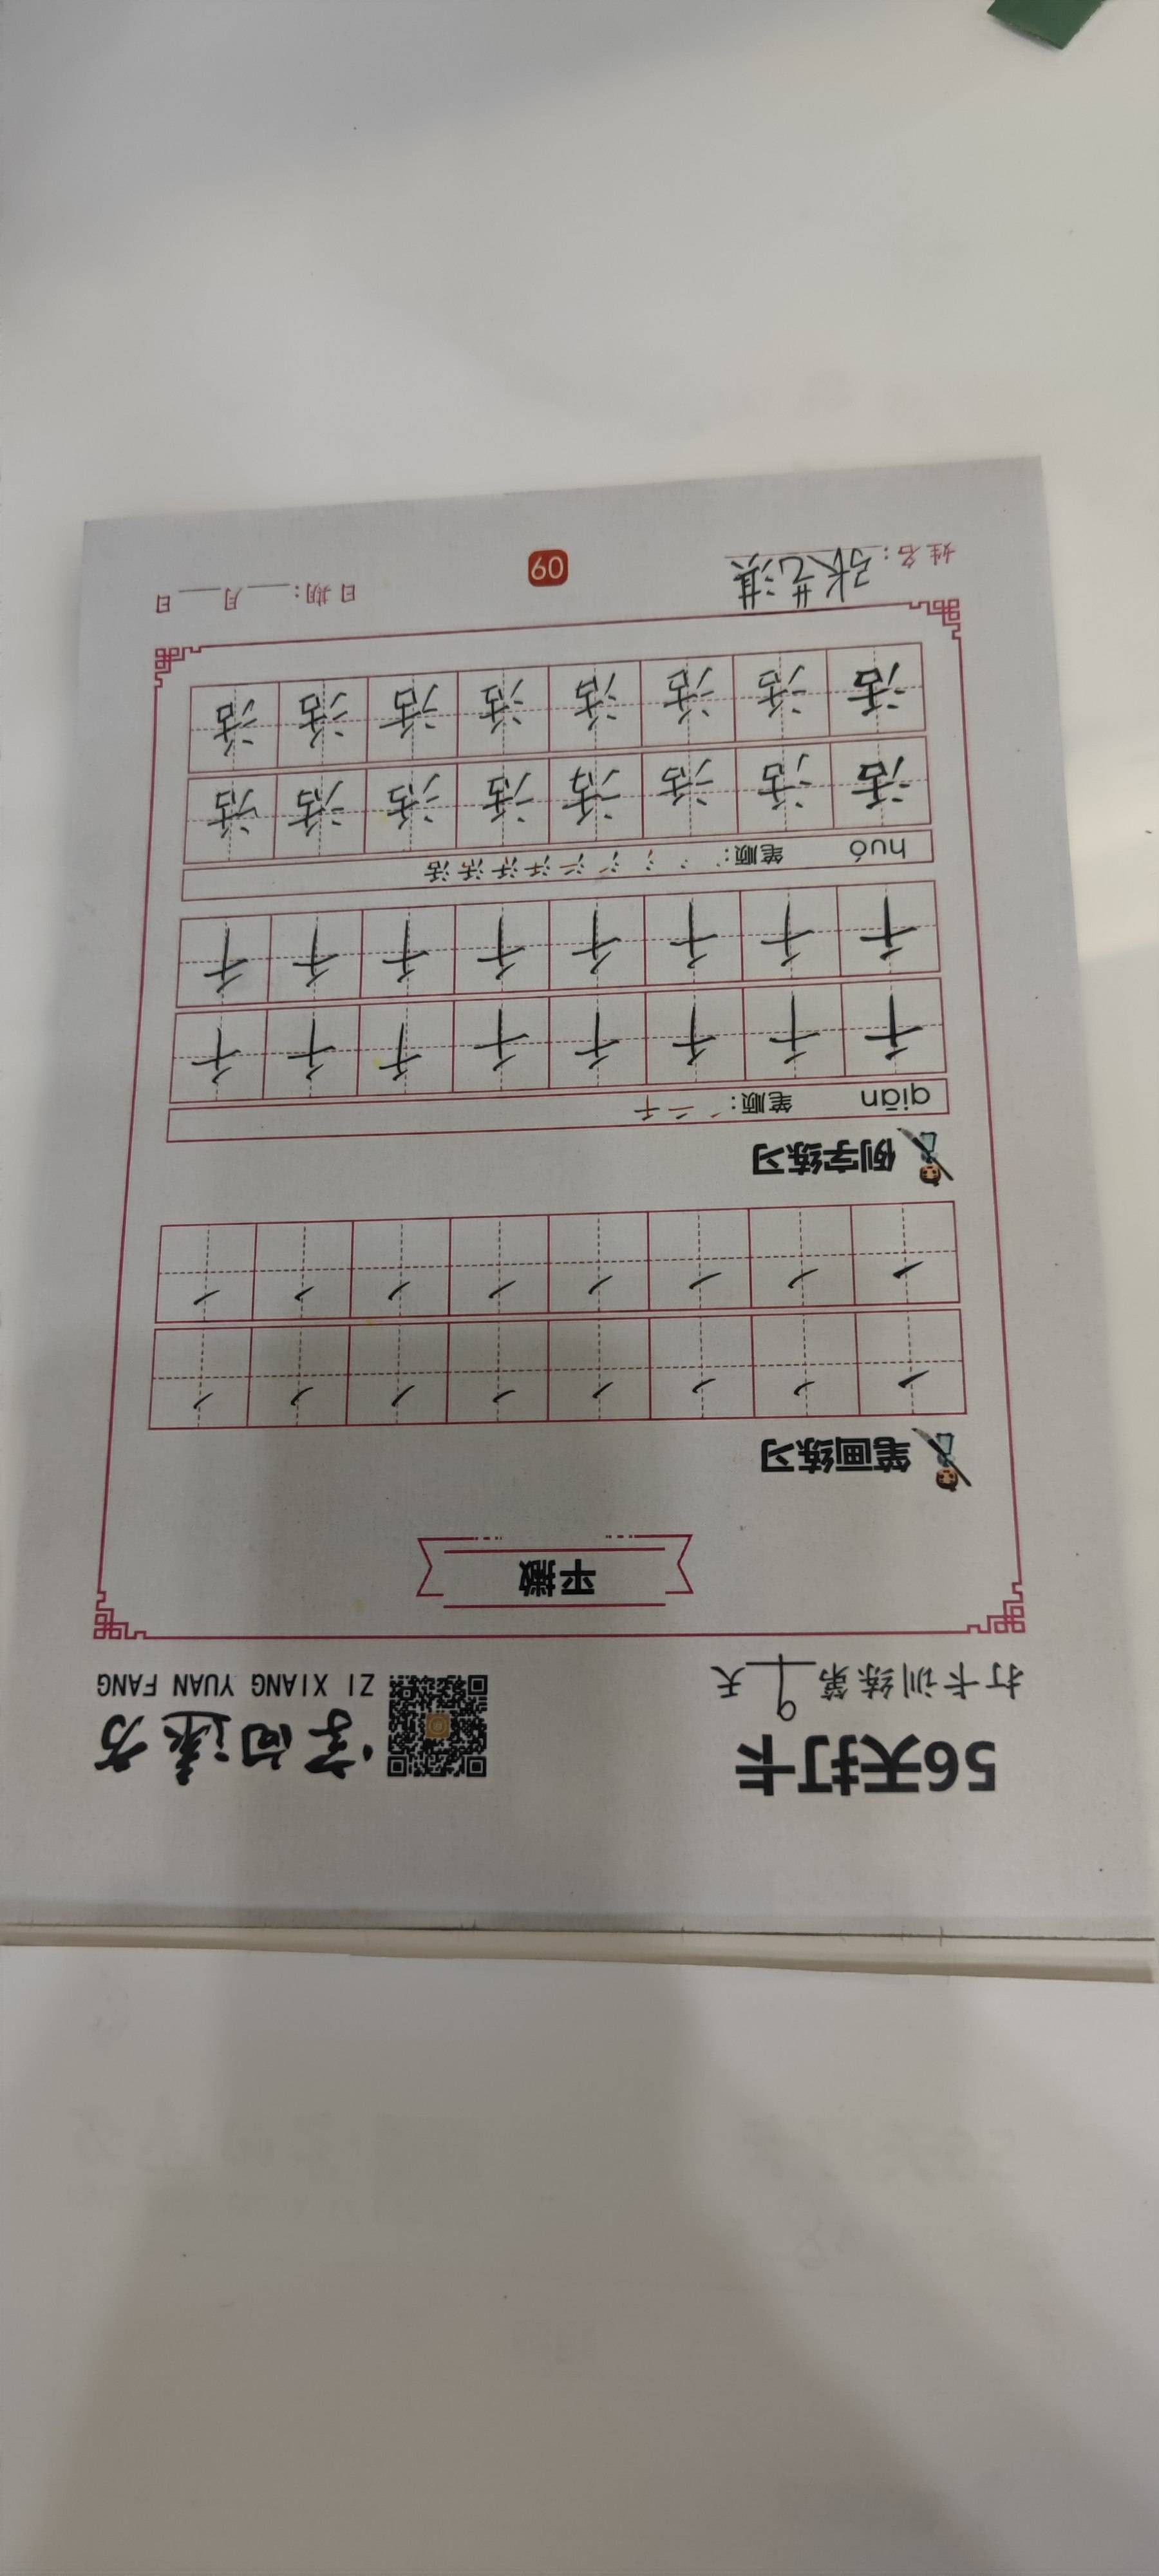 56天打卡
打卡训练第9天
字向远方
ZI XIANG YUAN FANG
平撇
笔画练习
例字练习
qiān 笔顺: 丿 二 千
千 千 千 千 千 千 千 千
千 千 千 千 千 千 千 千
huó 笔顺:
活 活 活 活 活 活 活 活
活 活 活 活 活 活 活 活
姓名: 张艺淇 60 日期: 月 日